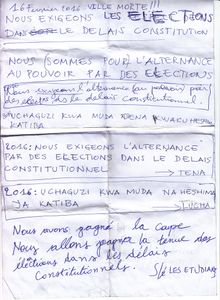 16 février 2016 VILLE MORTE!!!
NOUS EXIGEONS LES ELECTIONS
DANS LE DELAIS CONSTITUTION
NOUS (SOMMES POUR) L'ALTERNANCE
AU POUVOIR PAR DES ELECTIONS
Nous exigeons l'alternance au pouvoir par
des élections ds le délais Constitutionnel.
UCHAGUZI KWA MUDA KWAKUHESHIMU
KATIBA
2016: NOUS EXIGEONS L'ALTERNANCE
PAR DES ELECTIONS DANS LE DELAIS
CONSTITUTIONNEL → TENA.
2016: UCHAGUZI KWA MUDA NA HESHIMA
YA KATIBA → LUCHA
Nous avons gagné la coupe
Nous allons gagner la tenue des
élections dans les délais
Constitutionnels. S/é LES ETUDIANTS